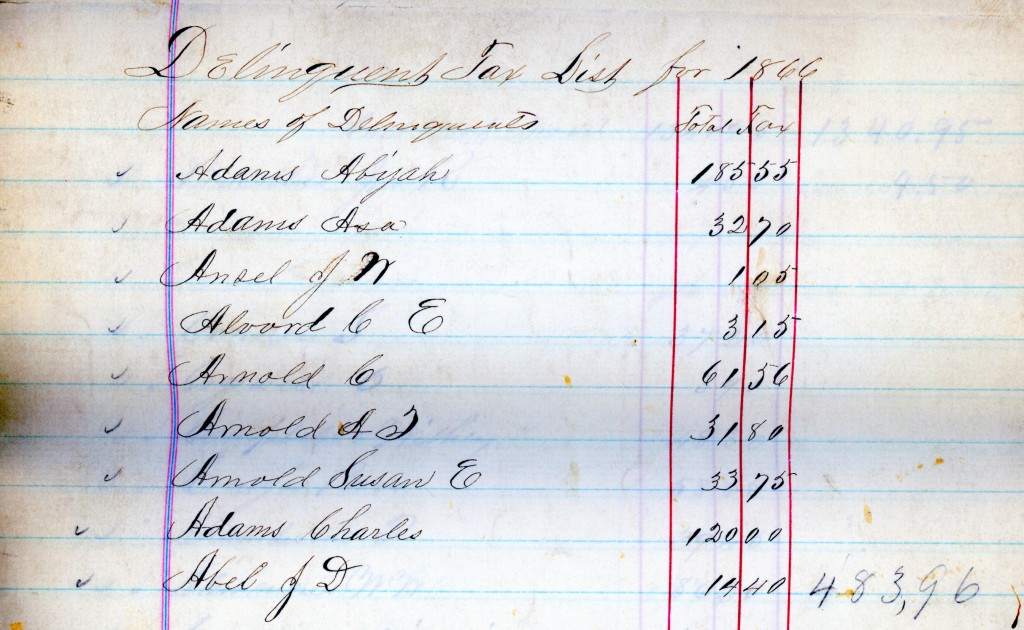 Delinquent Tax List for 1866
Names of Delinquents Total Tax 1340.95
✓ Adams Abijah 185 55 9.50
✓ Adams Asa 32 70
✓ Ansel J W 1 05
✓ Alvord C E 3 15
✓ Arnold C 61 56
✓ Arnold A T 31 80
✓ Arnold Susan E 33 75
✓ Adams Charles 120 00
✓ Abel J D 14 40 483,96